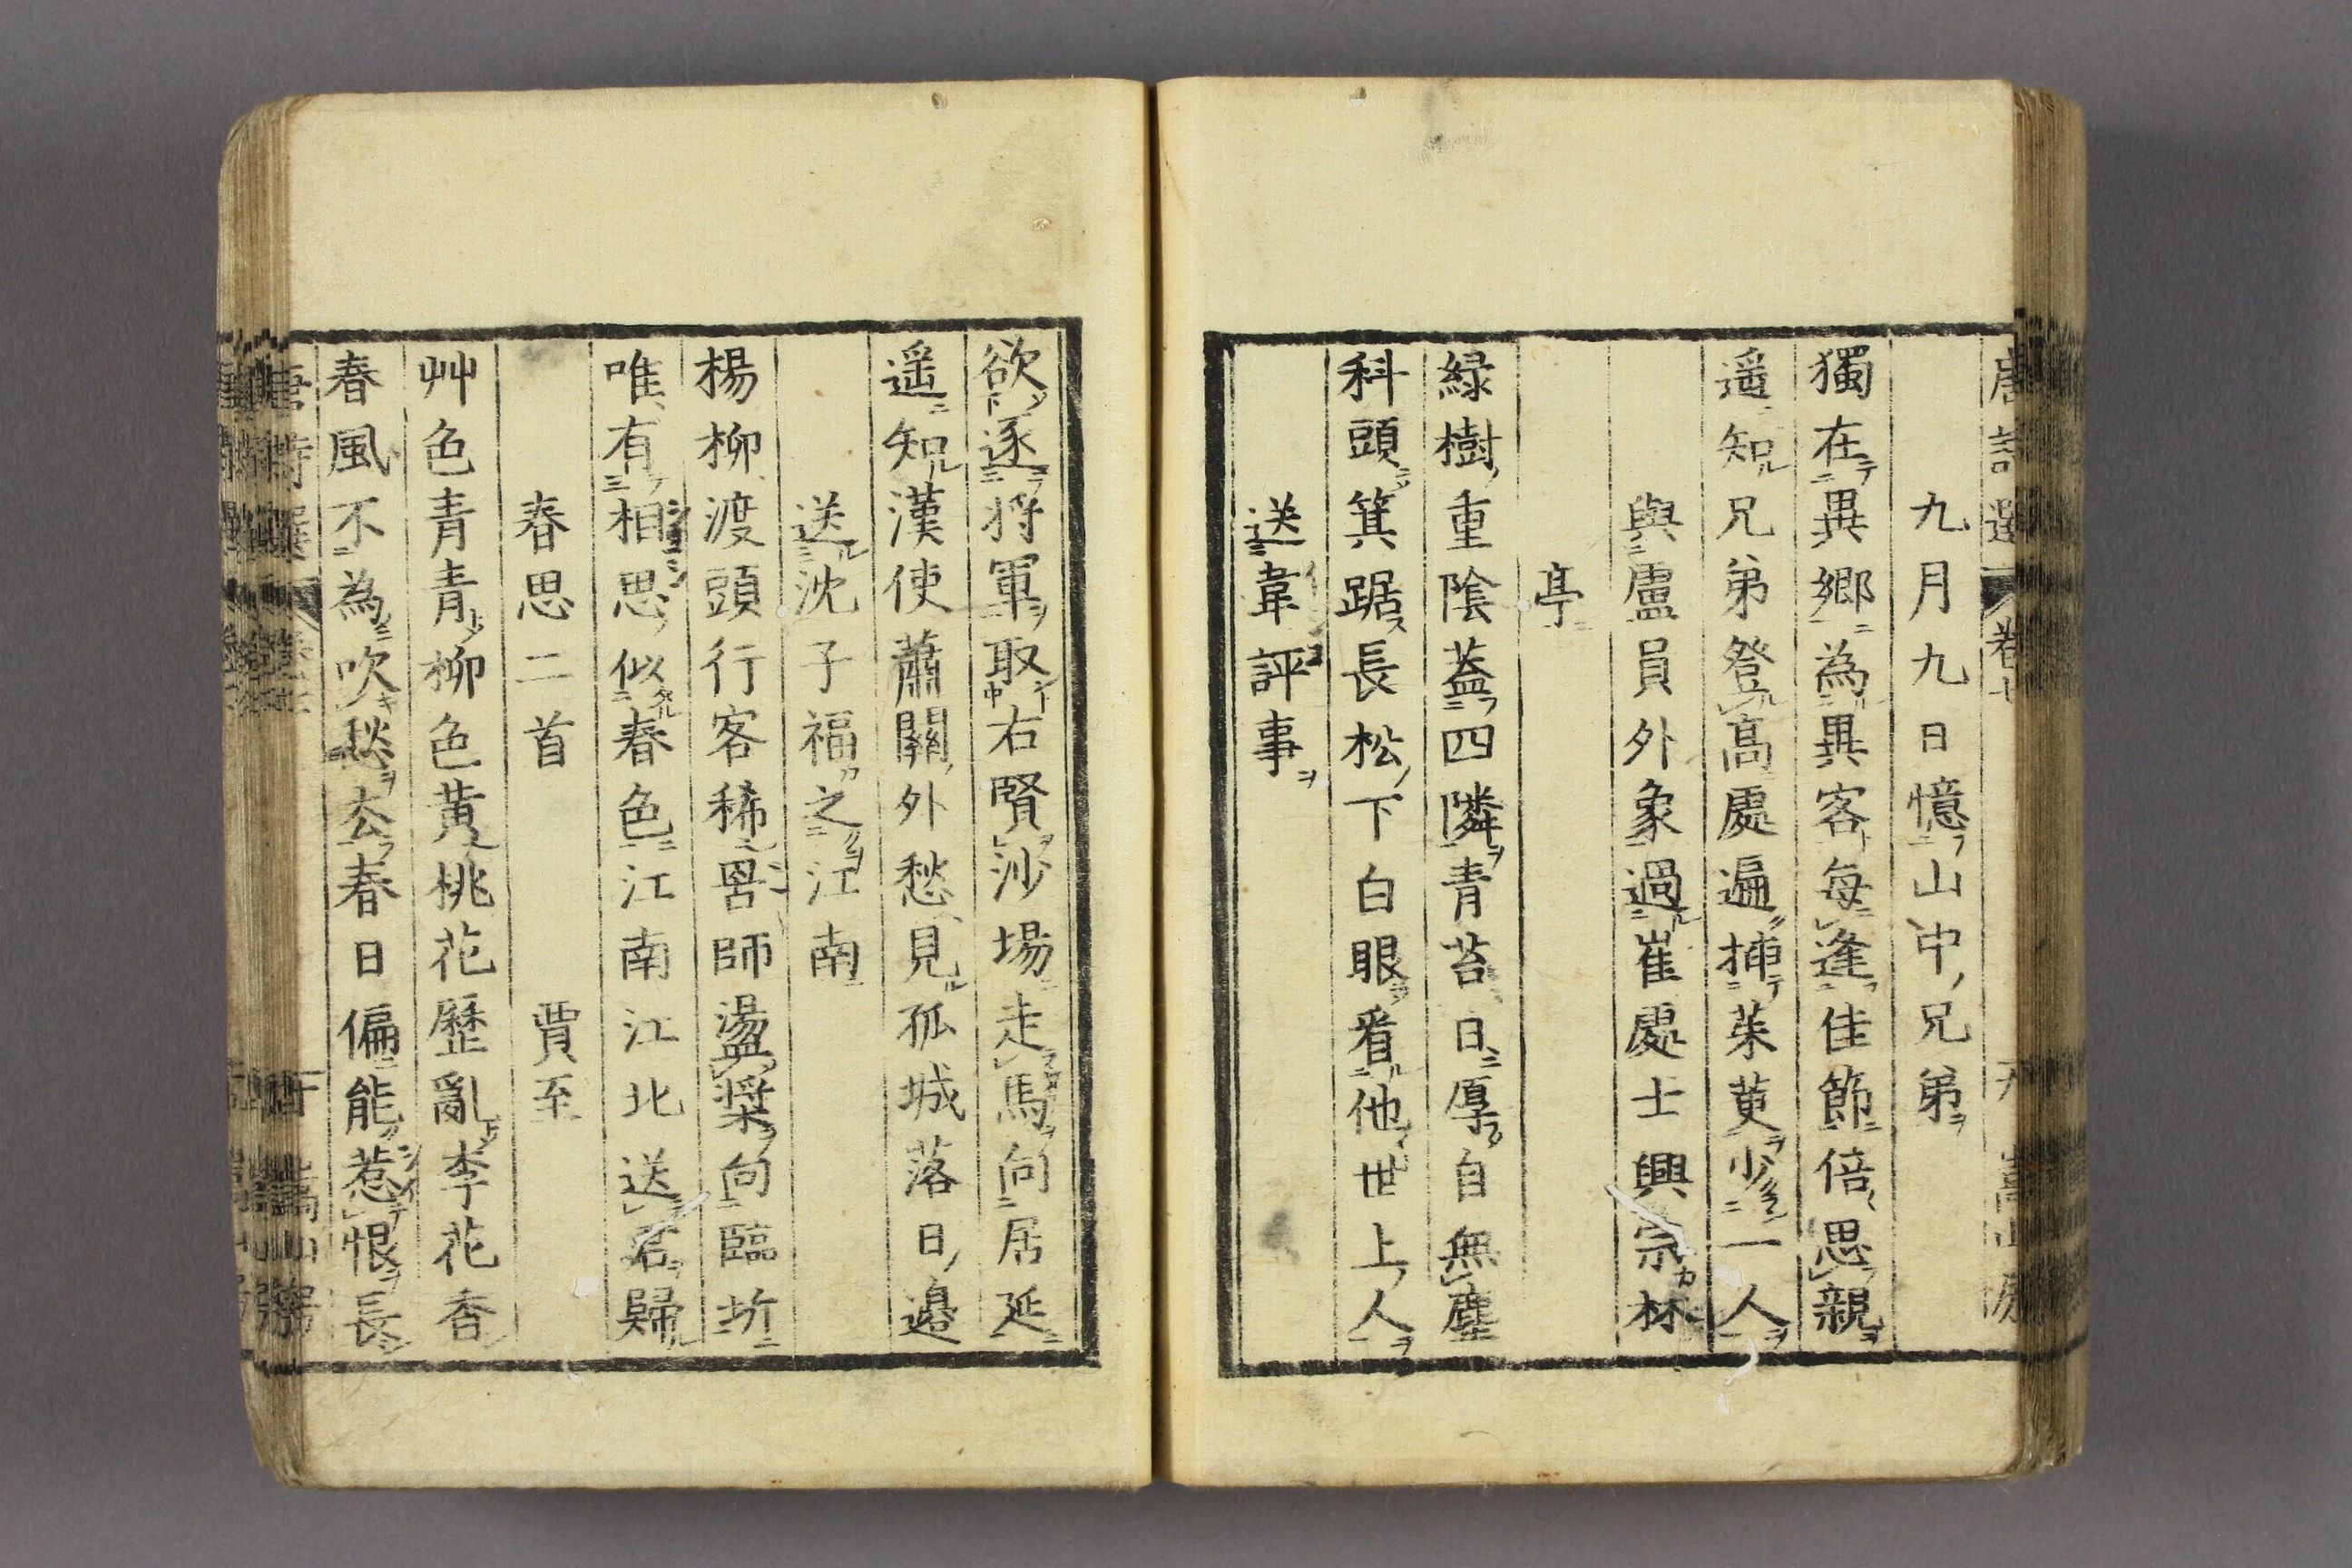 九月九日憶山中兄弟
獨在異鄉為異客每逢佳節倍思親
遥知兄弟登高處遍挿茱萸少一人
與盧員外象過崔處士興宗林
亭
緑樹重陰蓋四隣青苔日厚自無塵
科頭箕踞長松下白眼看他世上人
送韋評事
欲逐将軍取右賢沙場走馬向居延
遥知漢使蕭關外愁見孤城落日邉
送沈子福之江南
楊柳渡頭行客稀罟師盪槳向臨圻
唯有相思似春色江南江北送君歸
春思二首 賈至
艸色青青柳色黄桃花歷亂李花香
春風不為吹愁去春日偏能惹恨長